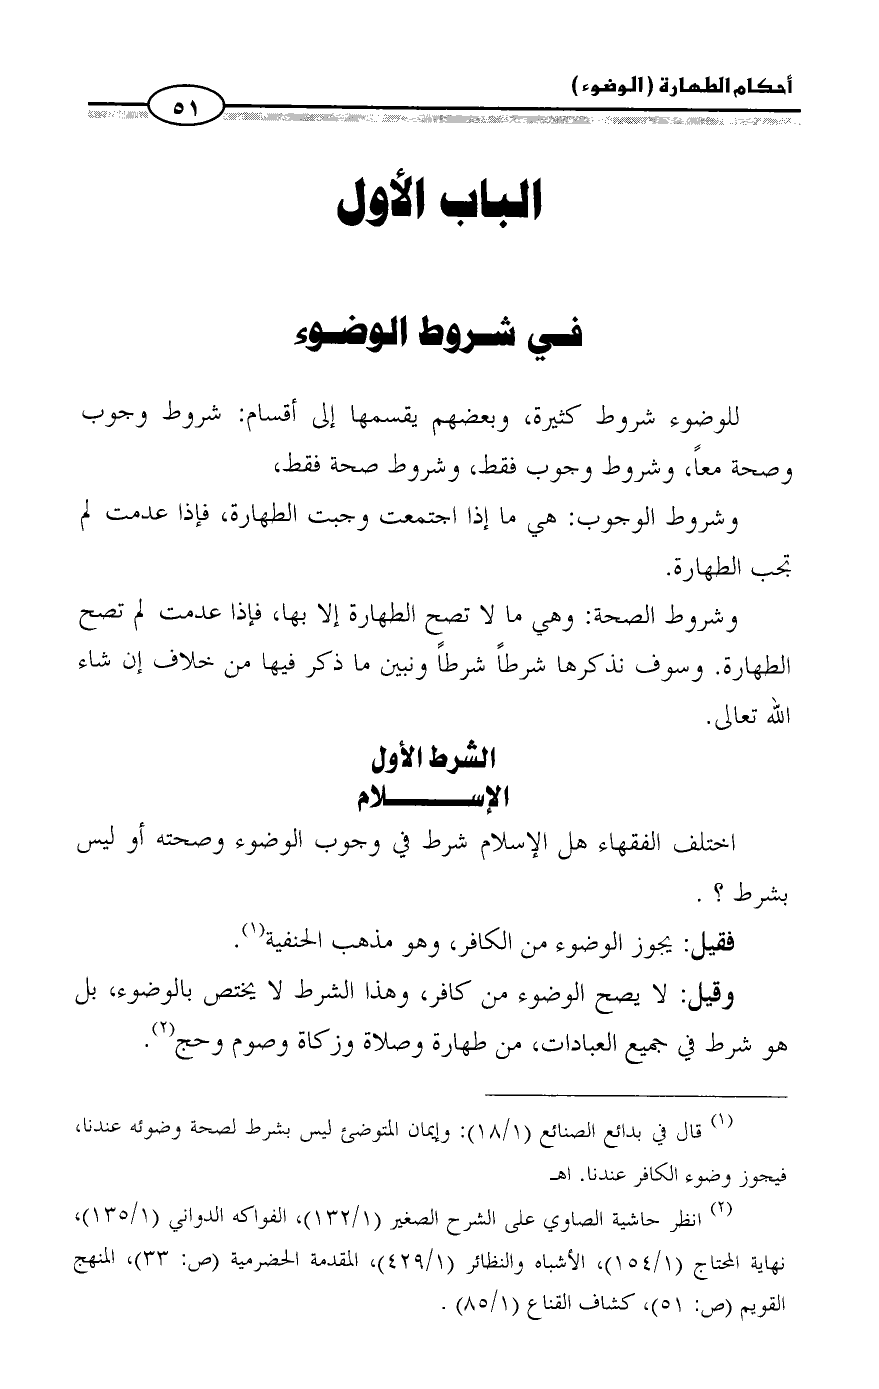 أحكام الطهارة (الوضوء)
٥١
الباب الأول
في شروط الوضوء
للوضوء شروط كثيرة، وبعضهم يقسمها إلى أقسام: شروط وجوب
وصحة معاً، وشروط وجوب فقط، وشروط صحة فقط،
وشروط الوجوب: هي ما إذا اجتمعت وجبت الطهارة، فإذا عدمت لم
تجب الطهارة.
وشروط الصحة: وهي ما لا تصح الطهارة إلا بها، فإذا عدمت لم تصح
الطهارة. وسوف نذكرها شرطاً شرطاً ونبين ما ذكر فيها من خلاف إن شاء
الله تعالى.
الشرط الأول
الإسلام
اختلف الفقهاء هل الإسلام شرط في وجوب الوضوء وصحته أو ليس
بشرط ؟ .
فقيل: يجوز الوضوء من الكافر، وهو مذهب الحنفية(١).
وقيل: لا يصح الوضوء من كافر، وهذا الشرط لا يختص بالوضوء، بل
هو شرط في جميع العبادات، من طهارة وصلاة وزكاة وصوم وحج(٢).
(١) قال في بدائع الصنائع (١٨/١): وإيمان المتوضئ ليس بشرط لصحة وضوئه عندنا،
فيجوز وضوء الكافر عندنا. اهـ
(٢) انظر حاشية الصاوي على الشرح الصغير (١٣٢/١)، الفواكه الدواني (١٣٥/١)،
نهاية المحتاج (١٥٤/١)، الأشباه والنظائر (٤٢٩/١)، المقدمة الحضرمية (ص: ٣٣)، المنهج
القويم (ص: ٥١)، كشاف القناع (٨٥/١) .